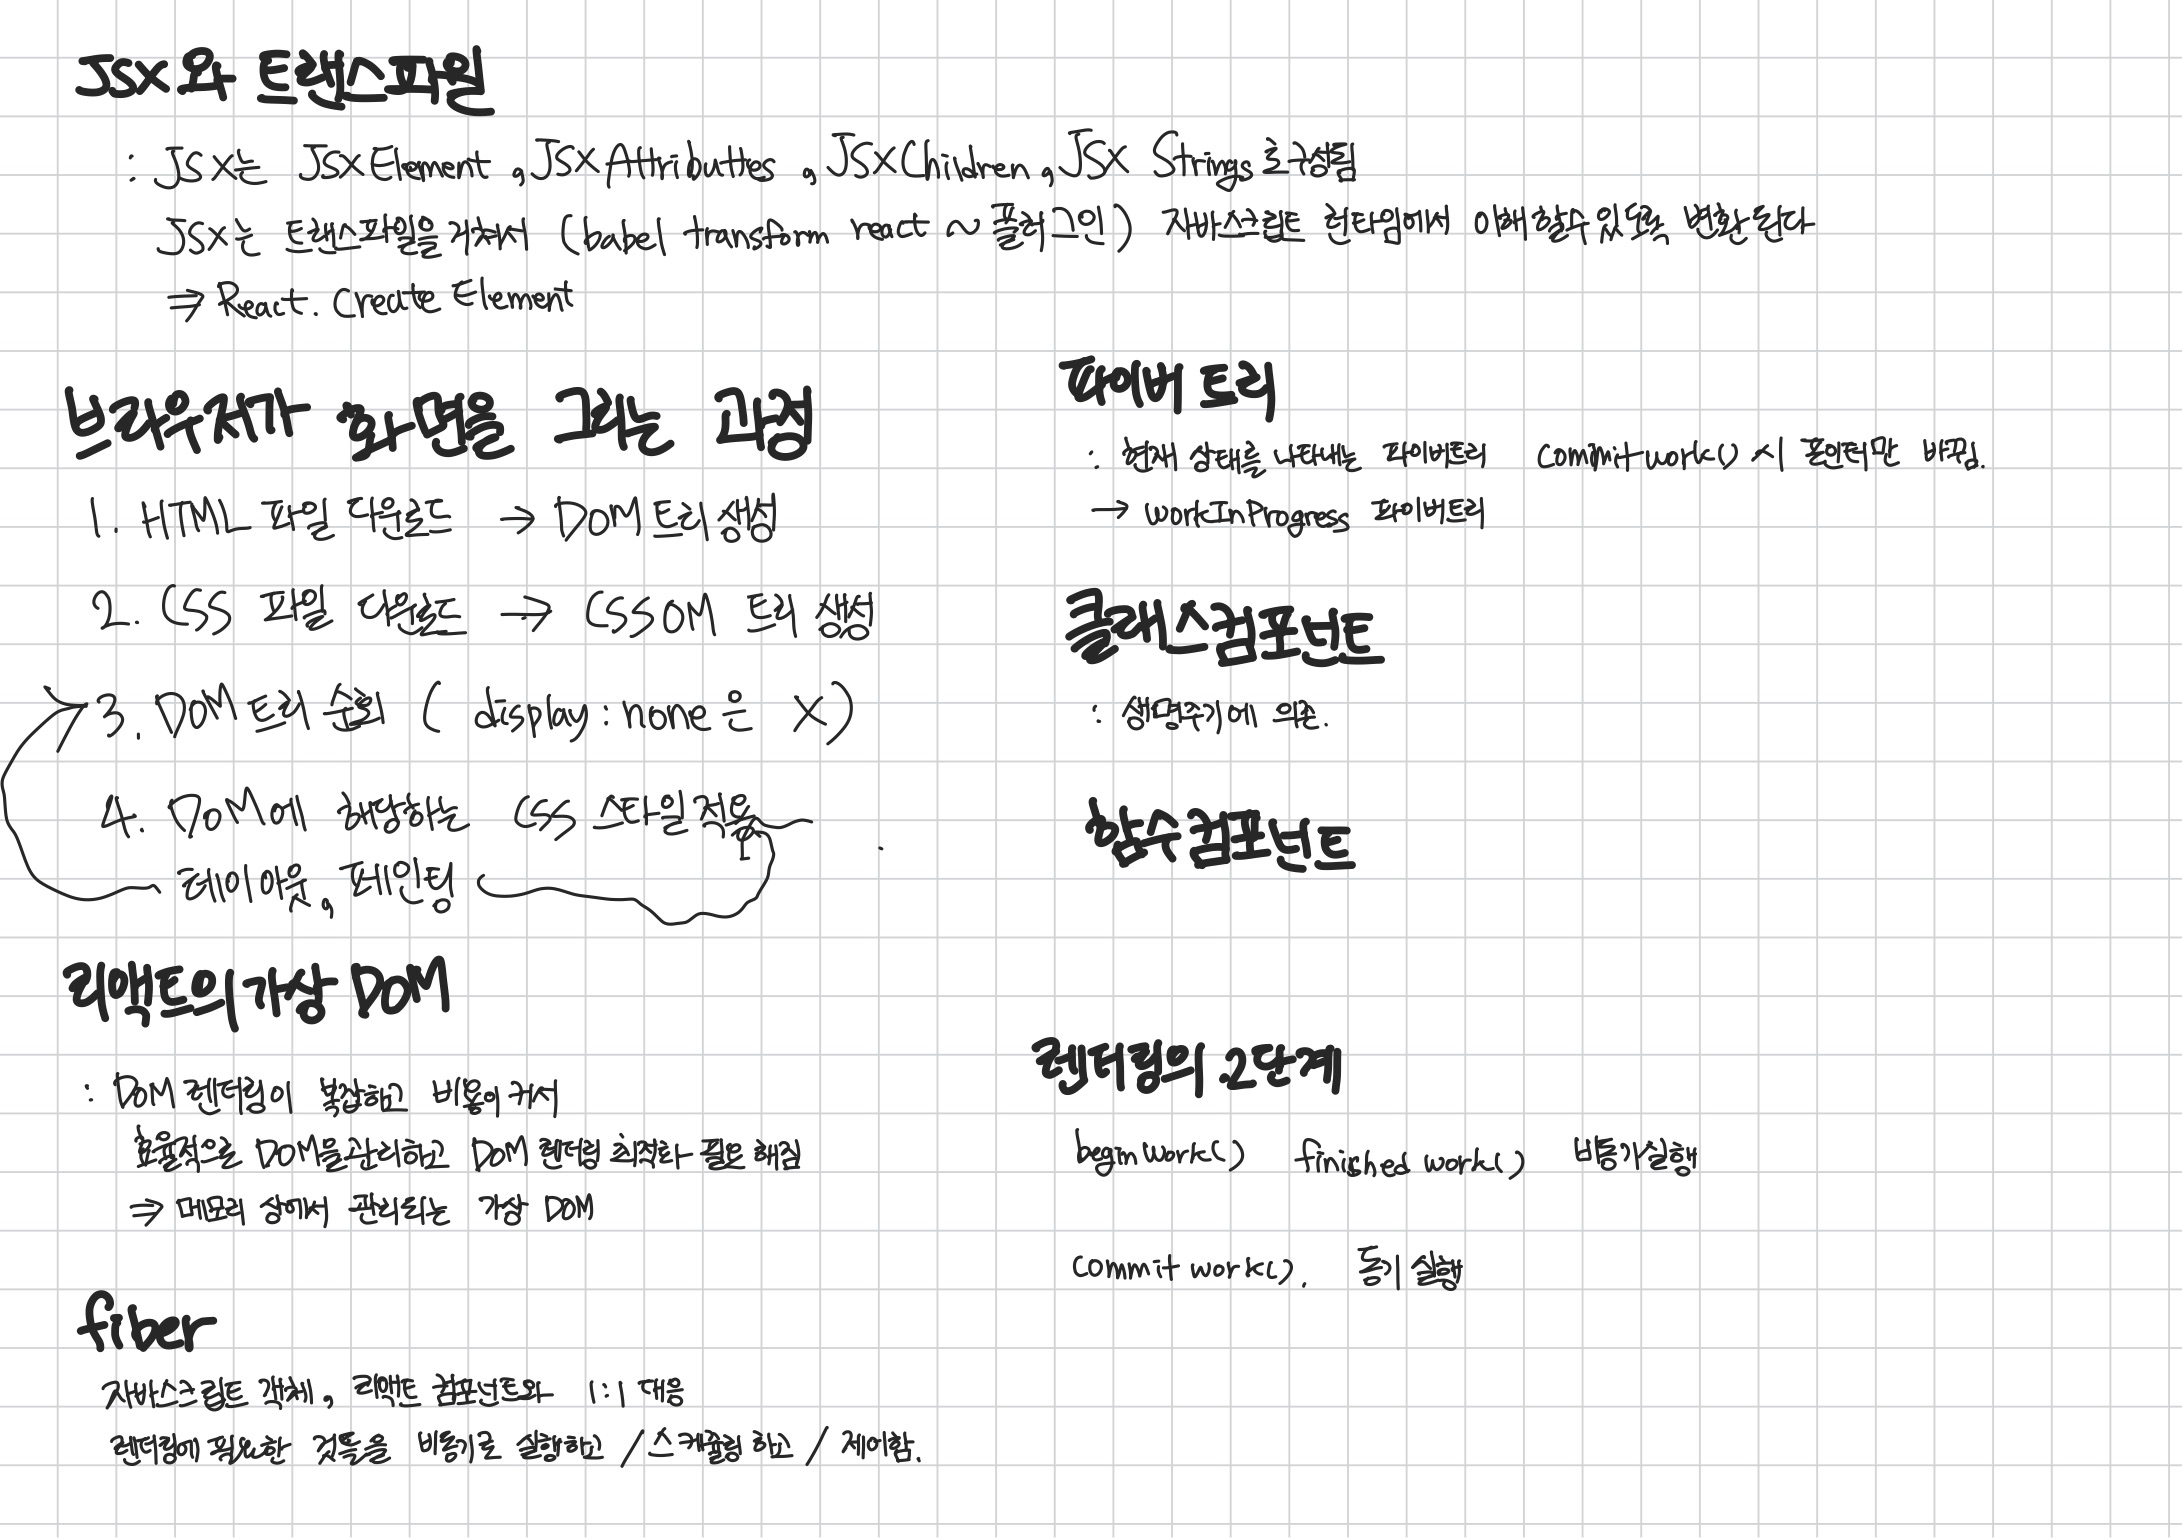 JSX와 트랜스파일
: JSX는 JSXElement, JSXAttributtes, JSXChildren, JSX Strings로 구성됨
JSX는 트랜스파일을 거쳐서 (babel transform react ~ 플러그인) 자바스크립트 런타임에서 이해할수 있도록 변환된다
⇒ React. Create Element
브라우저가 화면을 그리는 과정
1. HTML 파일 다운로드 → DOM트리 생성
2. CSS 파일 다운로드 → CSSOM 트리 생성
3. DOM트리 순회 ( display: none은 X)
4. DOM에 해당하는 CSS 스타일 적용
레이아웃, 페인팅
리액트의 가상 DOM
: DOM 렌더링이 복잡하고 비용이 커서
효율적으로 DOM을 관리하고 DOM 렌더링 최적화 필요해짐
⇒ 메모리 상에서 관리되는 가상 DOM
fiber
자바스크립트 객체, 리액트 컴포넌트와 1:1 대응
렌더링에 필요한 것들을 비동기로 실행하고 / 스케쥴링 하고 / 제어함.
파이버 트리
: 현재 상태를 나타내는 파이버트리 commitwork() 시 포인터만 바꿈.
→ workInProgress 파이버트리
클래스컴포넌트
: 생명주기에 의존.
함수컴포넌트
렌더링의 2단계
begin work() finished work() 비동기실행
commit work(). 동기 실행